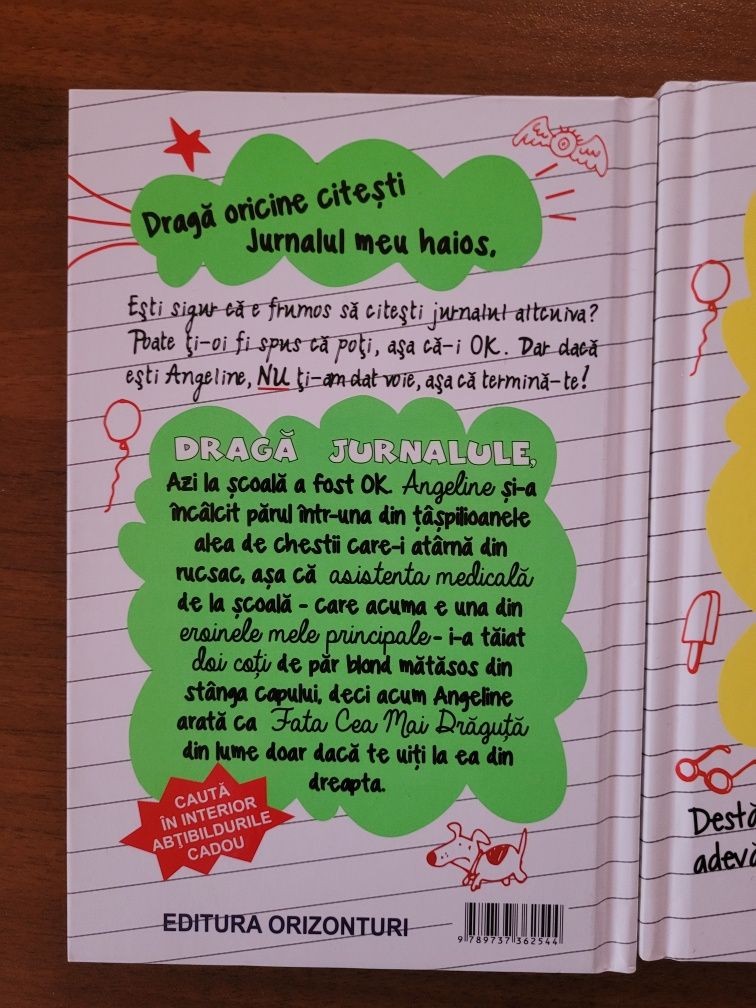 Dragă oricine citești
Jurnalul meu haios,
Ești sigur că e frumos să citești jurnalul altcuiva?
Poate ți-oi fi spus că poți, așa că-i OK. Dar dacă
ești Angeline, NU ți-am dat voie, așa că termină-te!
DRAGĂ JURNALULE,
Azi la școală a fost OK. Angeline și-a
încâlcit părul într-una din țâșpilioanele
alea de chestii care-i atârnă din
rucsac, așa că asistenta medicală
de la școală - care acuma e una din
eroinele mele principale - i-a tăiat
doi coți de păr blond mătăsos din
stânga capului, deci acum Angeline
arată ca Fata Cea Mai Drăguță
din lume doar dacă te uiți la ea din
dreapta.
CAUTĂ
ÎN INTERIOR
ABȚIBILDURILE
CADOU
EDITURA ORIZONTURI
9 789737 362544
Destă
adevă